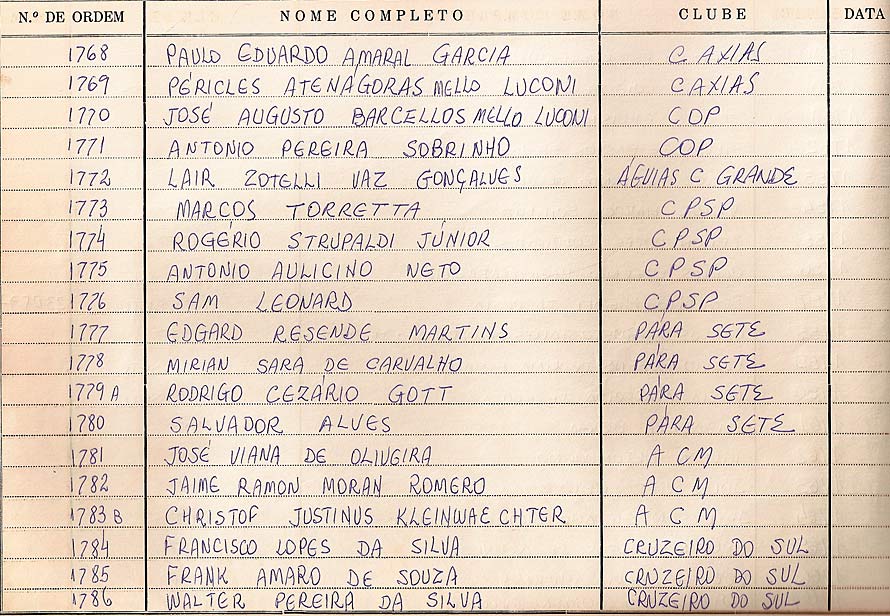 N.º DE ORDEM NOME COMPLETO CLUBE DATA
1768 PAULO EDUARDO AMARAL GARCIA CAXIAS
1769 PÉRICLES ATENÁGORAS MELLO LUCONI CAXIAS
1770 JOSÉ AUGUSTO BARCELLOS MELLO LUCONI COP
1771 ANTONIO PEREIRA SOBRINHO COP
1772 LAIR ZOTELLI VAZ GONÇALVES ÁGUIAS C GRANDE
1773 MARCOS TORRETTA CPSP
1774 ROGÉRIO STRUPALDI JÚNIOR CPSP
1775 ANTONIO AULICINO NETO CPSP
1776 SAM LEONARD CPSP
1777 EDGARD RESENDE MARTINS PÁRA SETE
1778 MIRIAN SARA DE CARVALHO PÁRA SETE
1779 A RODRIGO CEZÁRIO GOTT PÁRA SETE
1780 SALVADOR ALVES PÁRA SETE
1781 JOSÉ VIANA DE OLIVEIRA ACM
1782 JAIME RAMON MORAN ROMERO ACM
1783 B CHRISTOF JUSTINUS KLEINWAECHTER ACM
1784 FRANCISCO LOPES DA SILVA CRUZEIRO DO SUL
1785 FRANK AMARO DE SOUZA CRUZEIRO DO SUL
1786 WALTER PEREIRA DA SILVA CRUZEIRO DO SUL